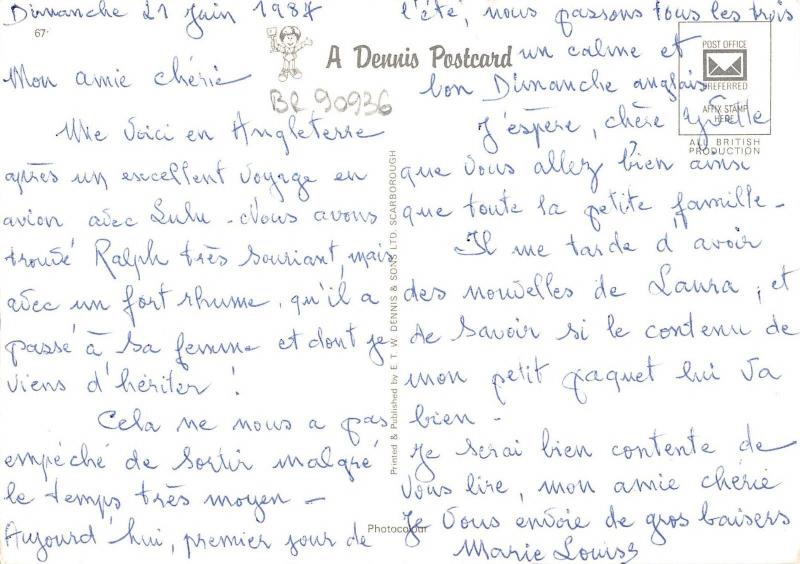 Dimanche 21 juin 1987
67.
Mon amie chérie
Me voici en Angleterre
après un excellent voyage en
avion avec Lulu - Nous avons
trouvé Ralph très souriant, mais
avec un fort rhume, qu'il a
passé à sa femme et dont je
viens d'hériter !
Cela ne nous a pas
empêché de sortir malgré
le temps très moyen -
Aujourd'hui, premier jour de
l'été, nous passons tous les trois
un calme et
bon Dimanche anglais
J'espère, chère Yvette
que vous allez bien ainsi
que toute la petite famille -
Il me tarde d'avoir
des nouvelles de Laura, et
de savoir si le contenu de
mon petit paquet lui va
bien -
Je serai bien contente de
vous lire, mon amie chérie
Je vous envoie de gros baisers
Marie Louise
A Dennis Postcard
BR 90936
POST OFFICE
PREFERRED
AFFIX STAMP
HERE
ALL BRITISH
PRODUCTION
Printed & Published by E. T. W. DENNIS & SONS LTD. SCARBOROUGH
Photocolour